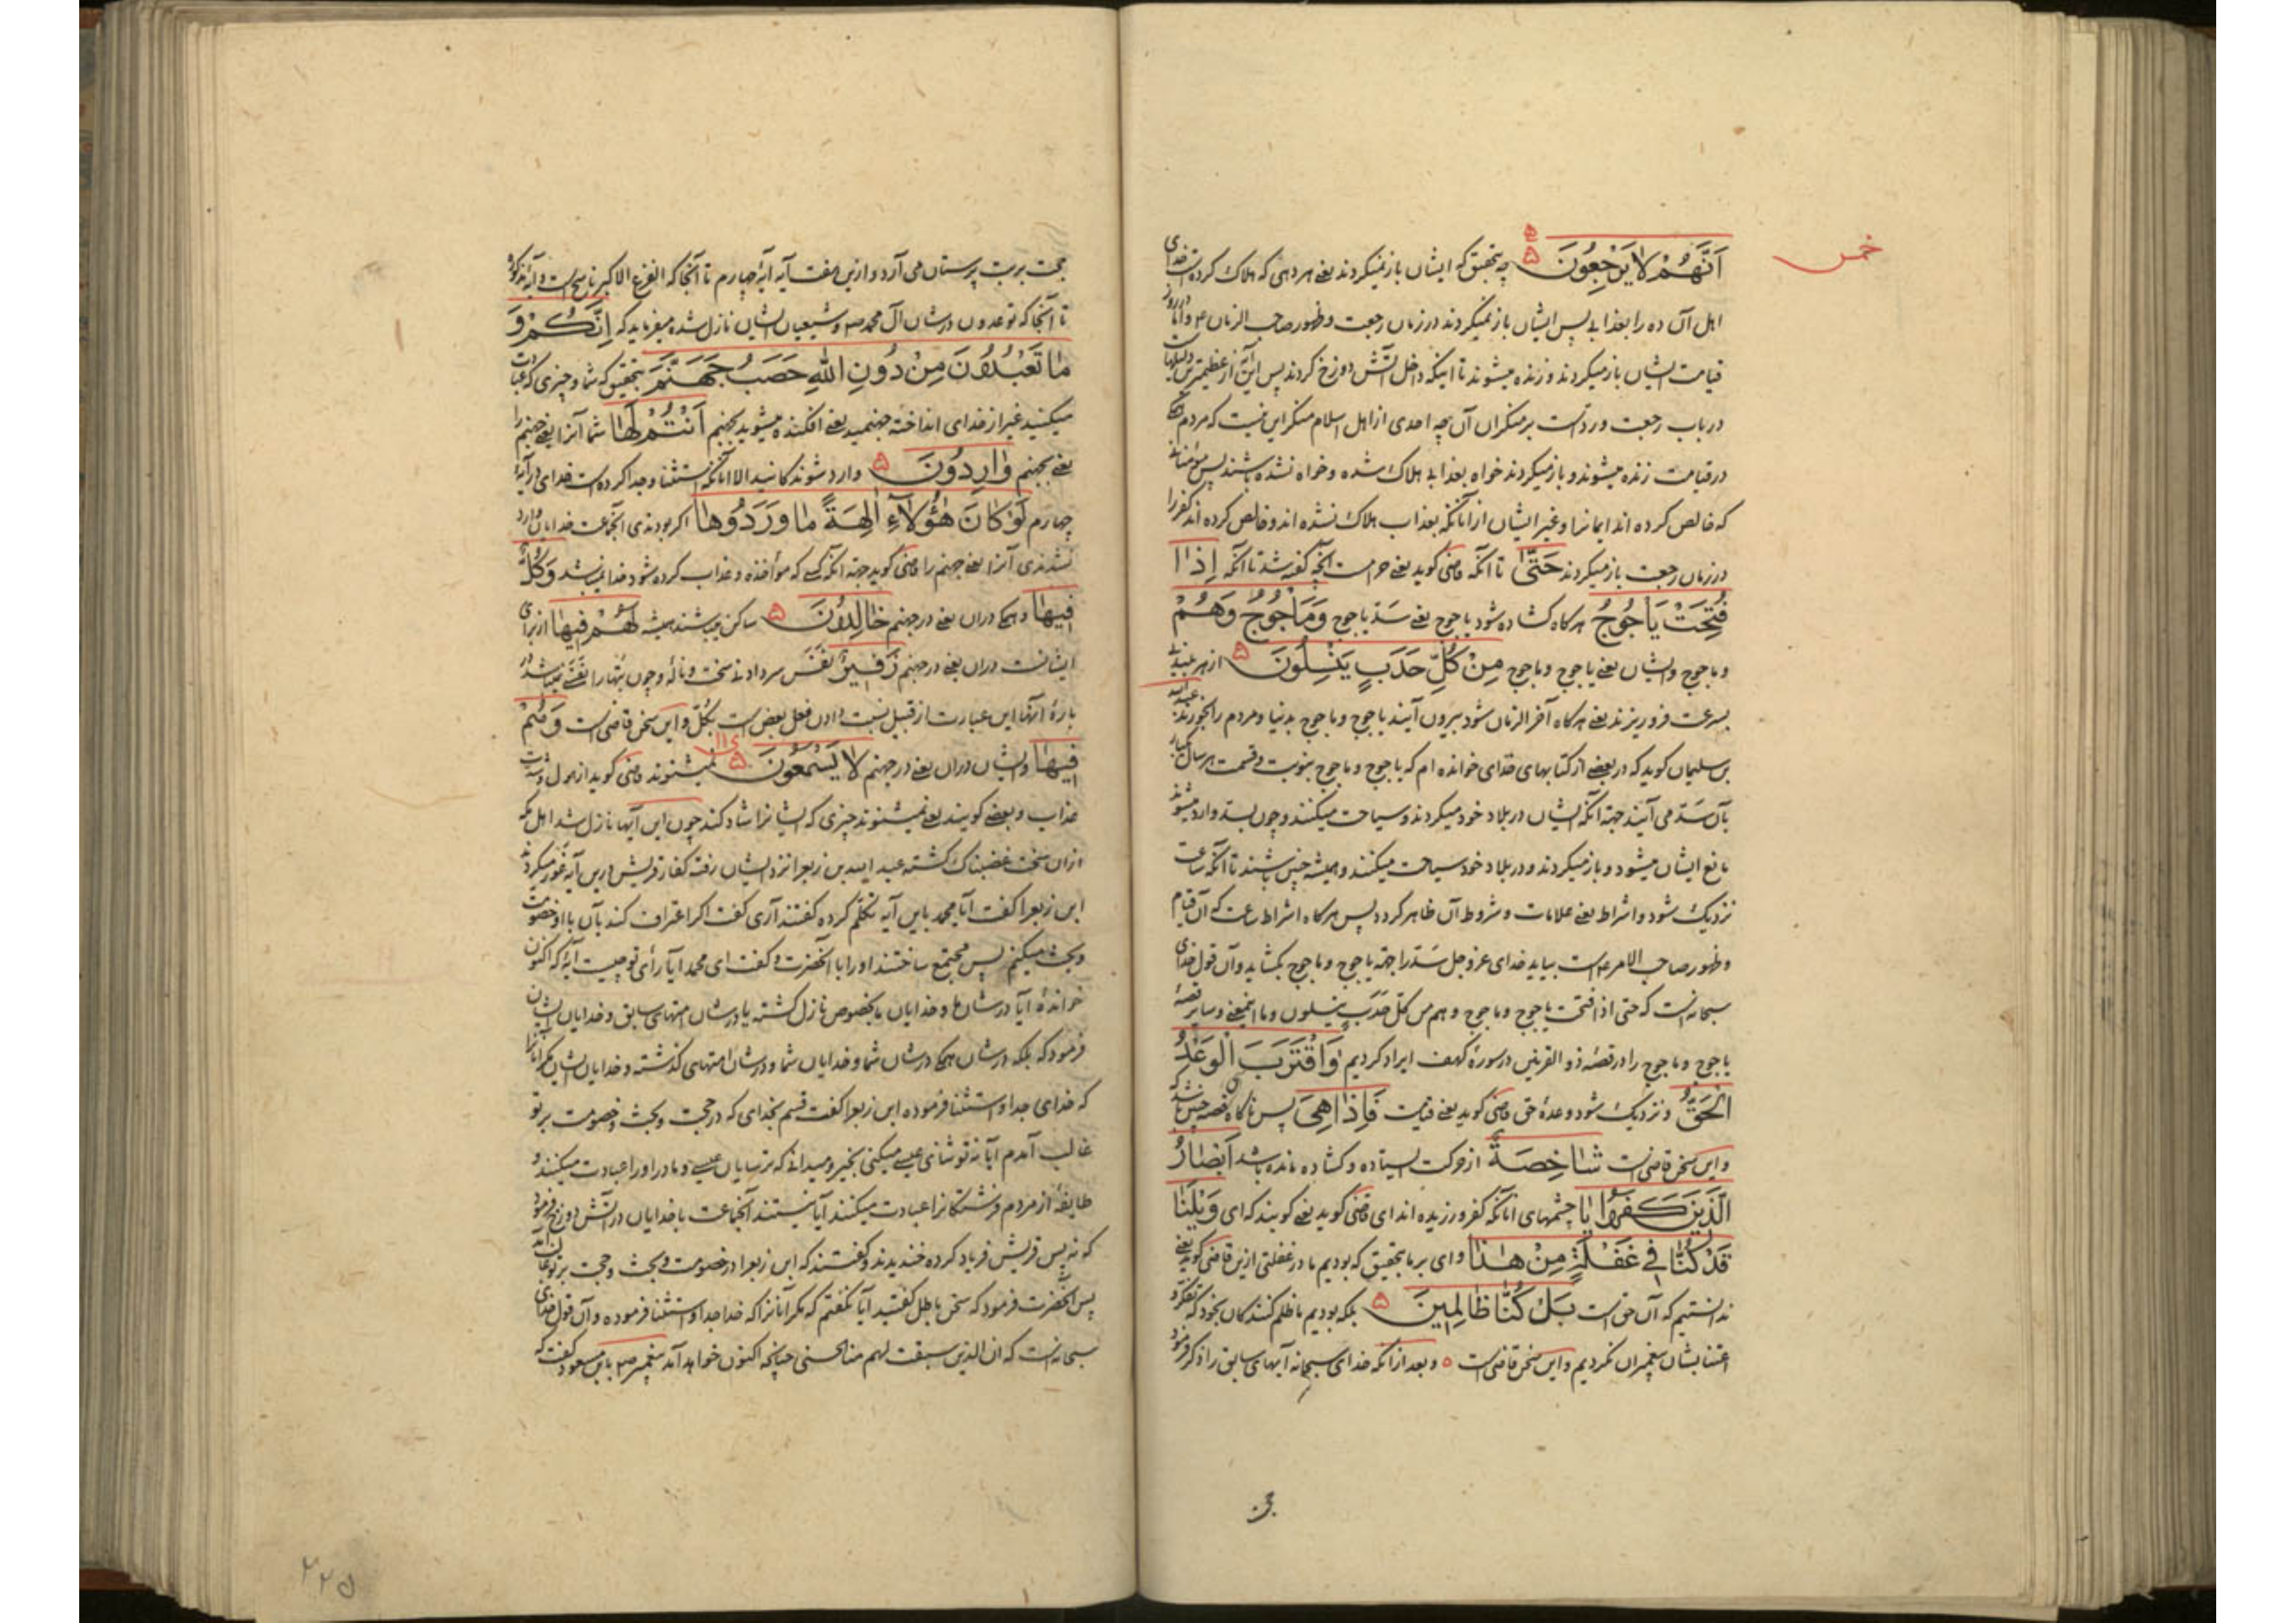 خمس
اَنَّهُمْ لا يَرْجِعُونَ ۵ چه بتحقیق که ایشان باز نمیکردند یعنی هر دهی که هلاک کرده است خدای
اهل آن ده را بعذابی پس ایشان باز نمیکردند در زمان رجعت و ظهور صاحب الزمان ع و اما در روز
قیامت ایشان باز میکردند و زنده میشوند تا اینکه داخل آتش دوزخ کردند پس این آیه از عظیمترین دلیلهاست
در باب رجعت و رد است بر منکران آن چه احدی از اهل اسلام منکر این نیست که مردم همه
در قیامت زنده میشوند و باز میکردند خواه بعذابی هلاک شده و خواه نشده باشند پس مؤمنانی
که خالص کرده اند ایمانرا و غیر ایشان از آنانکه بعذاب هلاک نشده اند و خالص کرده اند کفر را
در زمان رجعت باز میکردند حَتّىٰ تا آنکه قاضی کوید یعنی حرامست آنچه گفته شد تا آنکه اِذٰا
فُتِحَتْ يَأْجُوجُ هر کاه کشاده شود یاجوج یعنی سدّ یاجوج وَمَأْجُوجُ وَهُمْ
و ماجوج و ایشان یعنی یاجوج و ماجوج مِنْ كُلِّ حَدَبٍ يَنْسِلُونَ ۵ از هر بلندیی
بسرعت فرو ریزند یعنی هر کاه آخر الزمان شود بیرون آیند یاجوج و ماجوج بدنیا و مردم را بخورند عبد الله
بن سلیمان کوید که در بعضی از کتابهای خدای خوانده ام که یاجوج و ماجوج بنوبت و قسمت هر سال یکبار
بآن سدّ می آیند جهة آنکه ایشان در بلاد خود میکردند و سیاحت میکنند و چون بسدّ وارد میشوند
مانع ایشان میشود و باز میکردند و در بلاد خود سیاحت میکنند و همیشه چنین باشند تا آنکه ساعت
نزدیک شود و اشراط یعنی علامات و شروط آن ظاهر کردد پس هر کاه اشراط ساعت که آن قیام
و ظهور صاحب الامر ع است بیاید خدای عز و جل سدّ را جهة یاجوج و ماجوج بکشاید و آن قول خدای
سبحانه است که حتی اذا فتحت یاجوج و ماجوج و هم من کلّ حدب ینسلون و ما اینمعنی و سایر قصّه
یاجوج و ماجوج را در قصّه ذو القرنین در سورهٔ کهف ایراد کردیم وَاقْتَرَبَ الْوَعْدُ
الْحَقُّ و نزدیک شود وعدهٔ حق قاضی کوید یعنی قیامت فَاِذٰا هِىَ پس ناکاه قصه چنین باشد که
و این سخن قاضی است شٰاخِصَةٌ از حرکت ایستاده و کشاده مانده باشد اَبْصٰارُ
الَّذينَ كَفَرُوا يٰا چشمهای آنانکه کفر ورزیده اند ای قاضی کوید یعنی کویند که ای وَيْلَنٰا
قَدْ كُنّٰا فى غَفْلَةٍ مِنْ هٰذٰا وای بر ما بتحقیق که بودیم ما در غفلتی ازین قاضی کوید یعنی
ندانستیم که آن حق است بَلْ كُنّٰا ظٰالِمينَ ۵ بلکه بودیم ما ظلم کنندکان بخود که تفکر و
اعتنا بشان پیغمبران نکردیم و این سخن قاضی است ه و بعد از آنکه خدای سبحانه آیهای سابق را ذکر فرمود
حجت بر بت پرستان می آرد و ازین هفت آیه آیهٔ چهارم تا آنجا که الفزع الاکبر ناسخ است و آیهٔ مذکور
تا آنجا که توعدون در شان آل محمد ص و شیعیان ایشان نازل شده میفرماید که اِنَّكُمْ وَ
مٰا تَعْبُدُونَ مِنْ دُونِ اللهِ حَصَبُ جَهَنَّمَ بتحقیق که شما و چیزی که عبادت
میکنید غیر از خدای انداخته جهنمید یعنی افکنده میشوید بجهنم اَنْتُمْ لَهٰا شما آنرا یعنی جهنم را
یعنی بجهنم وٰارِدُونَ ۵ وارد شوندکانید الا آنانکه استثنا و جدا کرده است خدای در آیهٔ
چهارم لَوْ كٰانَ هٰؤُلآءِ اٰلِهَةً مٰا وَرَدُوهٰا اکر بودندی آنجماعت خدایان وارد
نشدندی آنرا یعنی جهنم را قاضی کوید جهة آنکه کسی که مواخذه و عذاب کرده شود خدا نمیباشد وَكُلٌّ
فيهٰا و همکی در آن یعنی در جهنم خٰالِدُونَ ۵ ساکن میباشند همیشه لَهُمْ فيهٰا از برای
ایشانست در آن یعنی در جهنم زَفيرٌ نفس سر دادند سخت و ناله و چون بتها را نفسی نمیباشد
بارهٔ این عبارت از قبیل نسبت دادن فعل بعض است بکلّ و این سخن قاضی است وَهُمْ
فيهٰا و ایشان در آن یعنی در جهنم لا يَسْمَعُونَ ۵ نمیشنوند قاضی کوید از هول و شدت
عذاب و بعضی کویند یعنی نمیشنوند چیزی که ایشانرا شاد کند چون این آیها نازل شد اهل مکه
از آن سخت غضبناک کشته عبد الله بن زبعرا نزد ایشان رفته کفار قریش درین آیه غور میکردند
ابن زبعرا کفت آیا محمد باین آیه تکلّم کرده کفتند آری کفت اکر اعتراف کند بآن با او خصومت
و بحث میکنم پس مجتمع ساختند او را با آنحضرت و کفت ای محمد آیا رأی تو چیست آیهٔ که اکنون
خواندهٔ آیا در شان ما و خدایان ما بخصوص نازل کشته یا در شان امتهای سابق و خدایان ایشان
فرمود که بلکه در شان همکی در شان شما و خدایان شما و در شان امتهای کذشته و خدایان ایشان مکر آنانرا
که خدای جدا و استثنا فرموده ابن زبعرا کفت قسم بخدای که در حجت و بحث و خصومت بر تو
غالب آمدم آیا نه تو ثنای عیسی میکنی بخیر و میدانی که ترسایان عیسی و مادر او را عبادت میکنند و
طایفهٔ از مردم فرشتکانرا عبادت میکنند آیا نیستند آنجماعت با خدایان در آتش دوزخ فرمود
که نه پس قریش فریاد کرده خندیدند و کفتند که ابن زبعرا در خصومت و بحث و حجت بر تو غالب آمد
پس آنحضرت فرمود که سخن باطل کفتید آیا نکفتم که مکر آنانرا که خدا جدا و استثنا فرموده و آن قول خدای
سبحانه است که ان الذین سبقت لهم منا الحسنی چنانچه اکنون خواهد آمد پیغمبر ص با ابن مسعود کفت که
۲۲۵